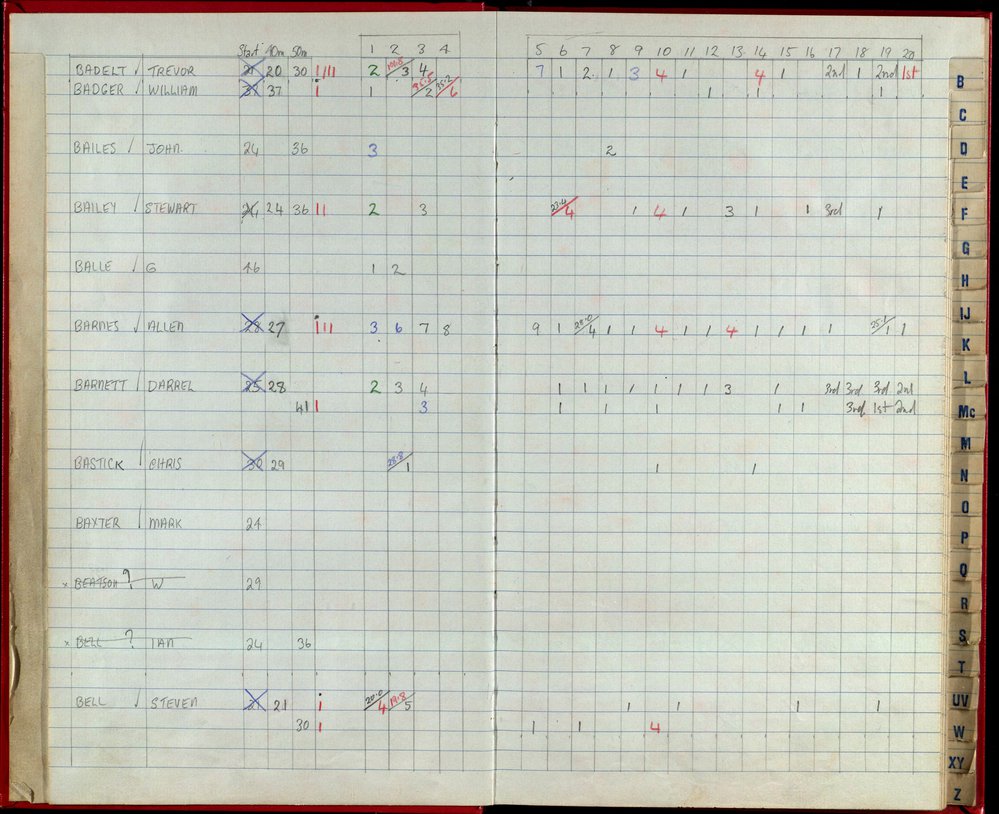 Start 40m 50m 1 2 3 4 5 6 7 8 9 10 11 12 13 14 15 16 17 18 19 20
BADELT / TREVOR 21 20 30 2 19.5/3 4 7 1 2 1 3 4 1 4 1 2nd 1 2nd 1st
BADGER / WILLIAM 37 1 35.5/2 35.2/6 1 1 1
BAILES / JOHN 24 36 3 2
BAILEY / STEWART 24 36 2 3 23.4/4 1 4 1 3 1 1 3rd 1
BALLE / G 46 1 2
BARNES / ALLEN 28 27 3 6 7 8 9 1 28.0/4 1 1 4 1 1 4 1 1 1 1 25.1/1 1
BARNETT / DARREL 25 28 2 3 4 1 1 1 1 1 1 1 3 1 3rd 3rd 3rd 2nd
41 3 1 1 1 1 1 3rd 1st 2nd
BASTICK / CHRIS 30 29 28.8/1 1 1
BAXTER / MARK 24
x BEATSON ? W 29
x BELL ? IAN 24 36
BELL / STEVEN 21 20.0/4 19.8/5 1 1 1 1
30 1 1 4
B
C
D
E
F
G
H
IJ
K
L
Mc
M
N
O
P
Q
R
S
T
UV
W
XY
Z